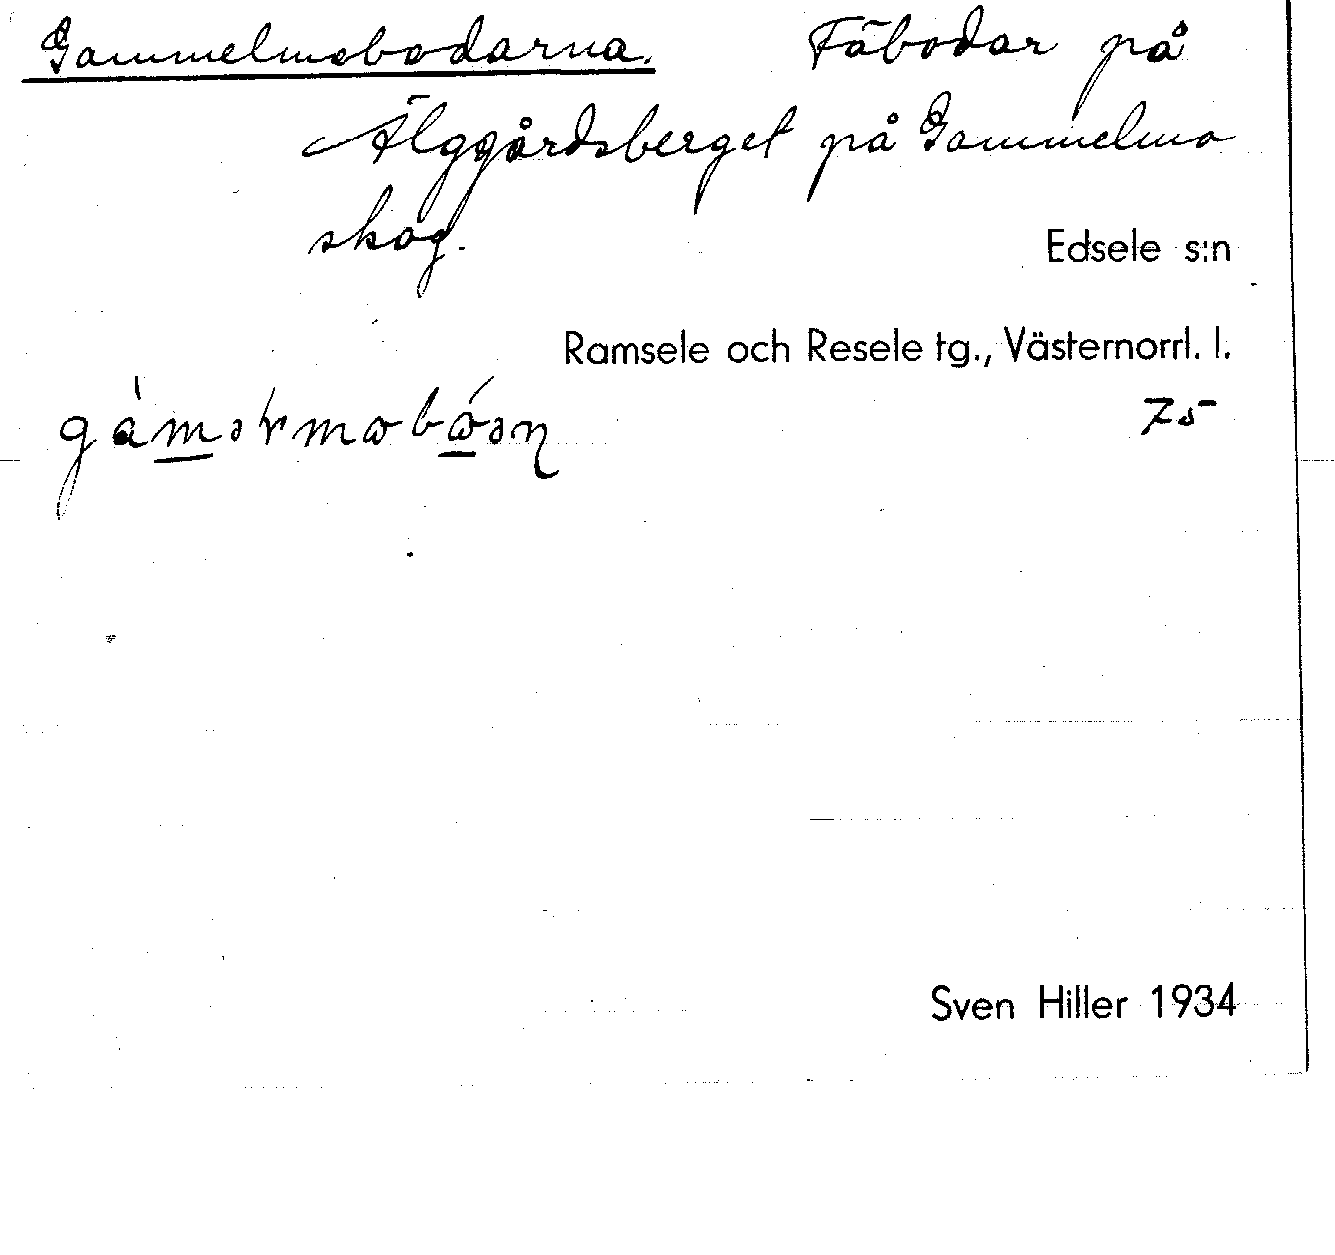 Gammelmobodarna. Fäbodar på
Älggårdsberget på Gammelmo
skog.
Edsele s:n
Ramsele och Resele tg., Västernorrl. l.
75
Sven Hiller 1934